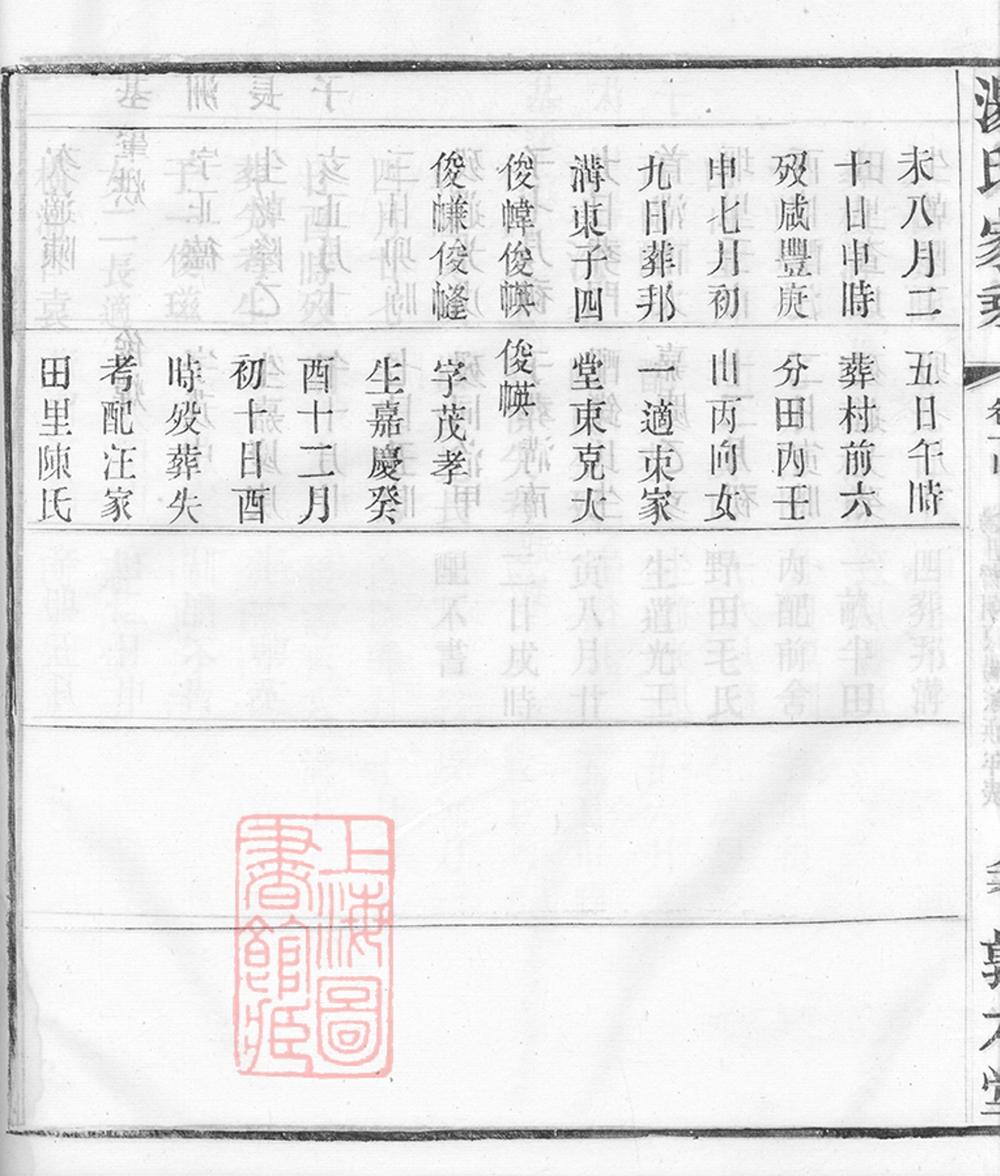 湯氏家乘
未八月二
十日申時
歿咸豐庚
申七月初
九日葬邦
溝東子四
俊幃俊
俊㡘俊
五日午時
葬村前六
分田內壬
山丙向女
一適東家
堂東克火
俊
字茂孝
生嘉慶癸
酉十二月
初十日酉
時歿葬失
考配汪家
田里陳氏
上海圖
書館藏